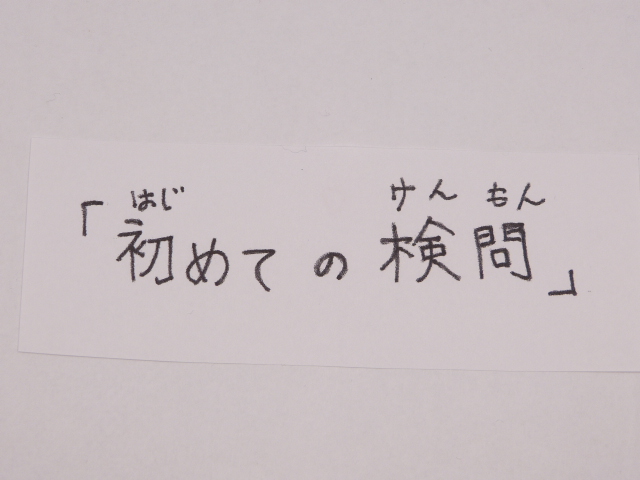 はじ けんもん
「初めての検問」